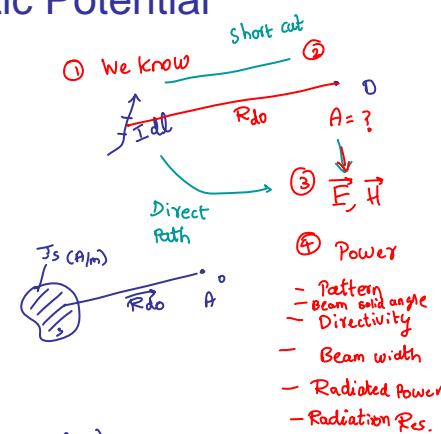 ic Potential
Short cut
① We know
②
Idl
Rdo
O
A = ?
③ E, H
Direct
Path
④ Power
Js (A/m)
Rdo
A
o
- Pattern
- Beam solid angle
- Directivity
- Beam width
- Radiated Power
- Radiation Res.